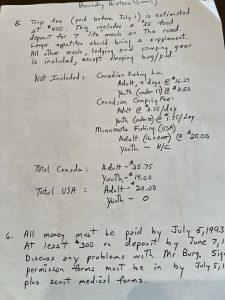 Boundry Waters (Cont.)
5. Trip fee (paid before July 1) is estimated
at $400. This includes a $35 food
deposit for 7 lite meals on the road.
Larger appetites should bring a supplement.
All other meals, lodging and camping gear
is included, except sleeping bag/pad.
Not Included: Canadian Fishing Lic.
Adult, 4 days @ $16.25
Youth (under 17) @ $3.50
Canadian Camping Fee:
Adult @ 3.25/day
Youth @ $1.75/day
Minnesota Fishing (USA)
Adult (16+over) @ $20.00
Youth - N/C
Total Canada: Adult - $35.75
Youth - $14.00
Total USA: Adult - $20.00
Youth - 0
6. All money must be paid by July 5, 1993
At least $300 on deposit by June 7, 1
Discuss any problems with Mr. Burg. Sig
permission forms must be in by July 5, 1
plus scout medical forms.